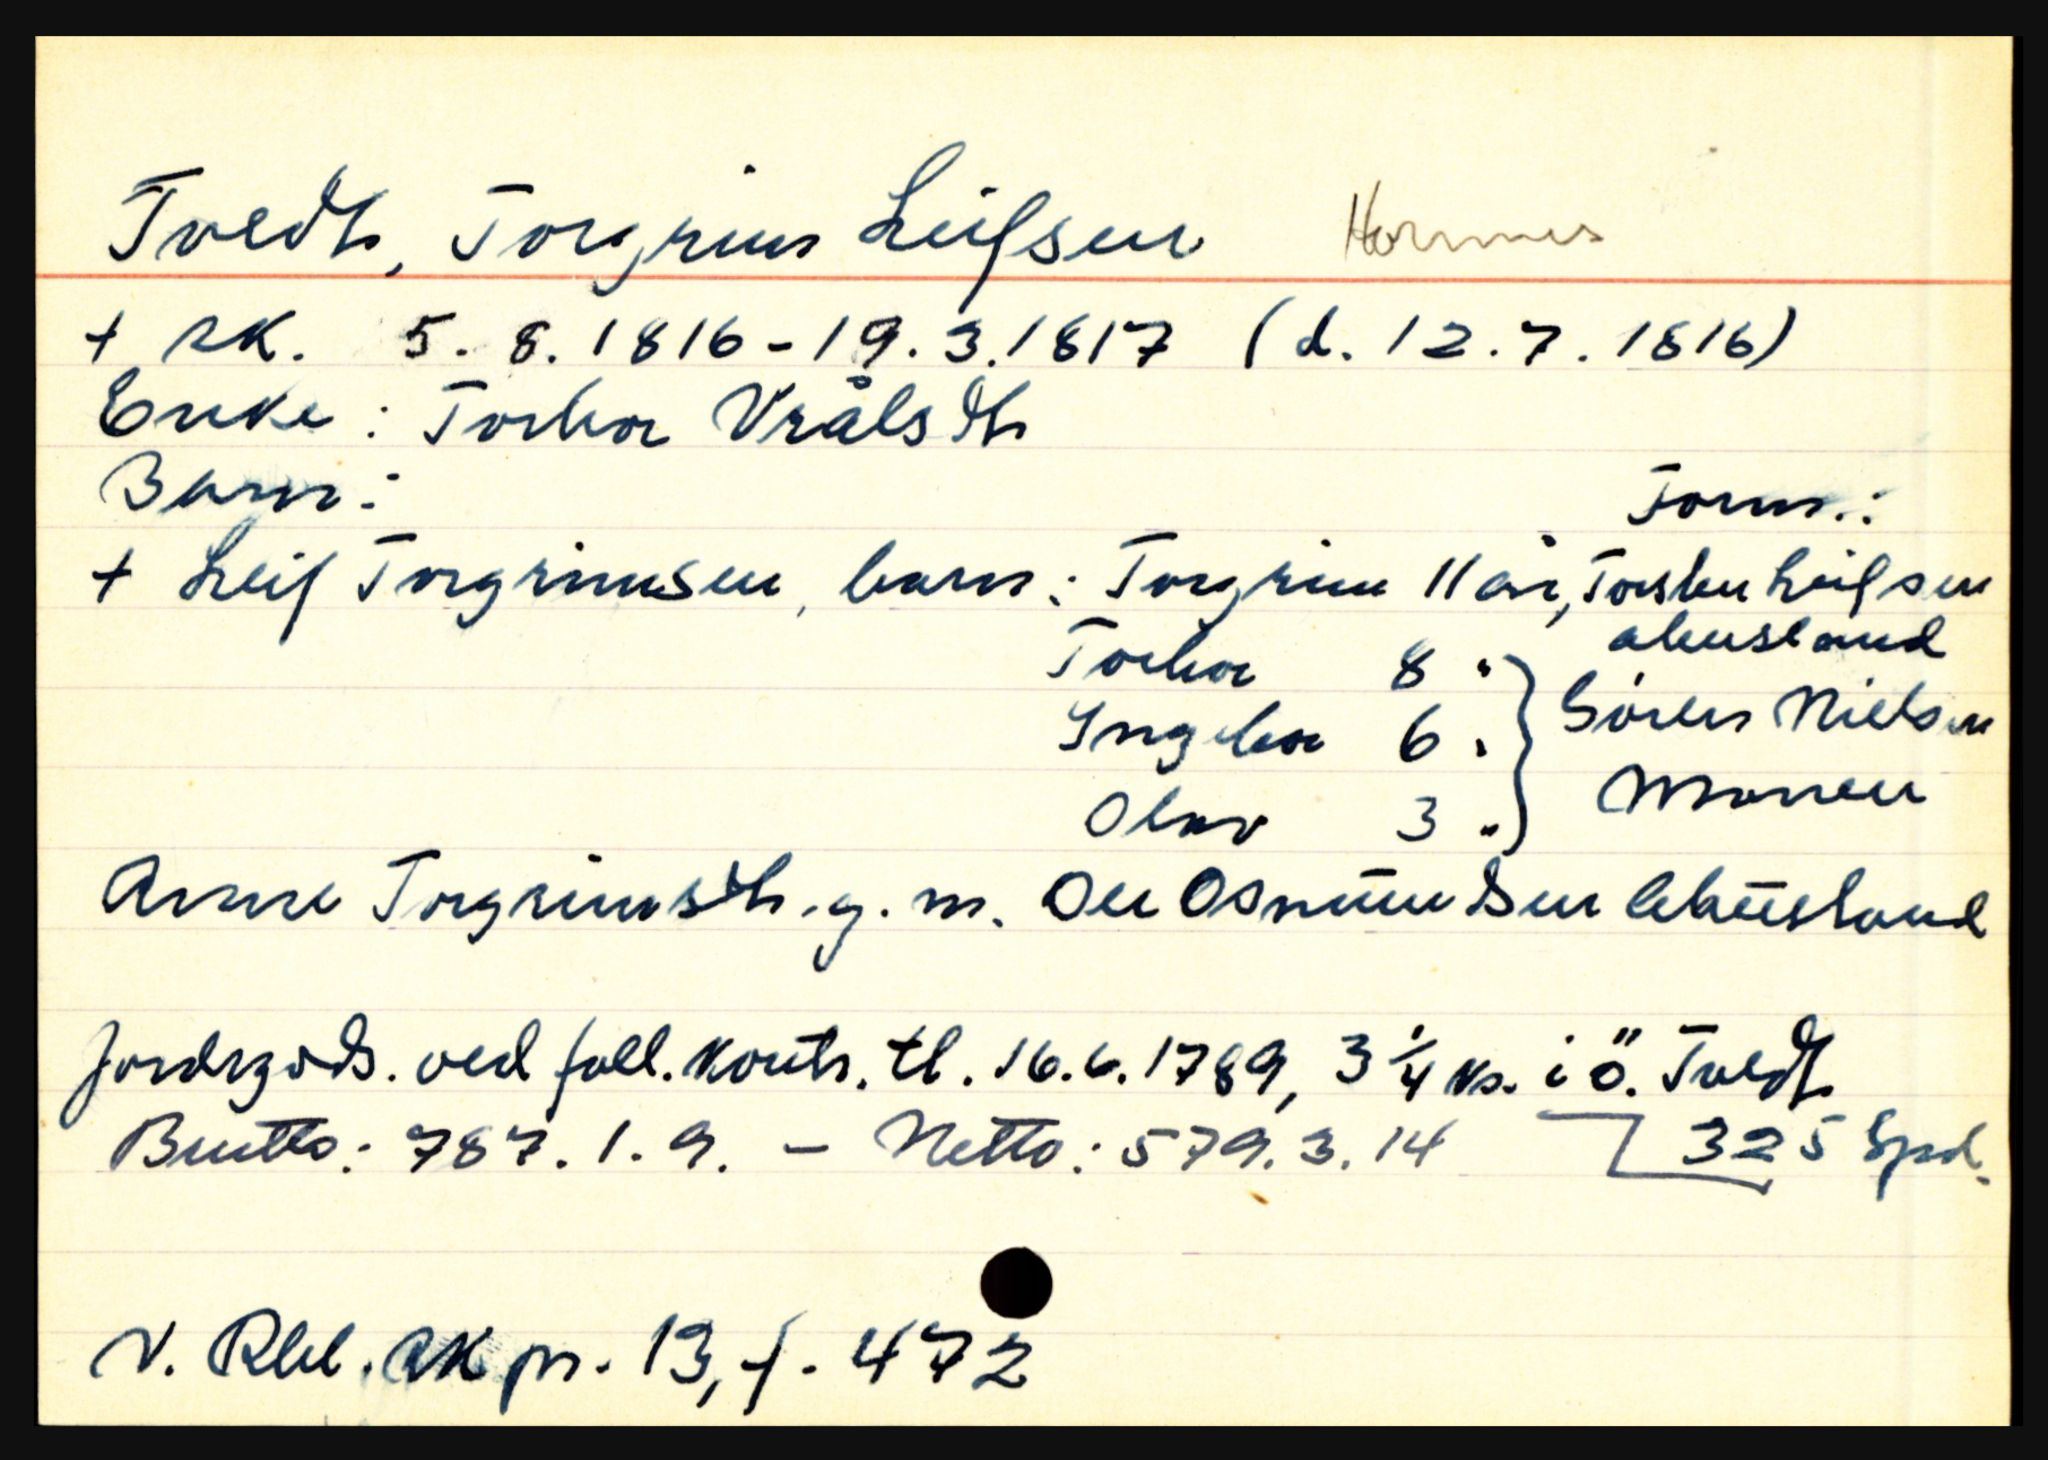 Tvedt, Torgrim Leifsen Hornnes
+ sk. 5.8.1816-19.3.1817 (d. 12.7.1816)
Enke: Torbor Vrålsdt
Barn: Form.:
+ Leif Torgrimsen, barn: Torgrim 11 år, Torsten Leifsen
Torbor 8 " Abusland
Ingebor 6 " } Sören Nielsen
Olav 3 " Monen
Anne Torgrimsdt. g. m. Ole Osmundsen Abusland
Jordegods. ved foll. kontr. tl. 16.6.1789, 3 1/4 ks. i ö. Tvedt
Brutto: 787.1.9. - Netto: 579.3.14 325 Spd.
N. Rbd. sk pr. 13, f. 472